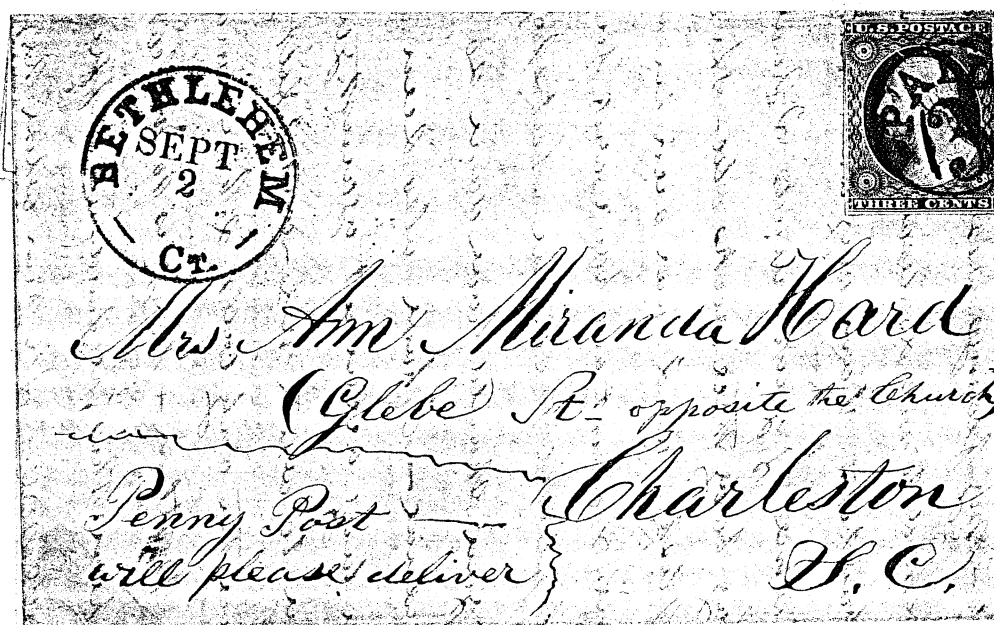 BETHLEHEM
SEPT
2
CT.
U.S. POSTAGE
PAID
3
THREE CENTS
Mrs Ann Miranda Hard
(Glebe St- opposite the Church,
Charleston
S.C.
Penny Post —
will please deliver